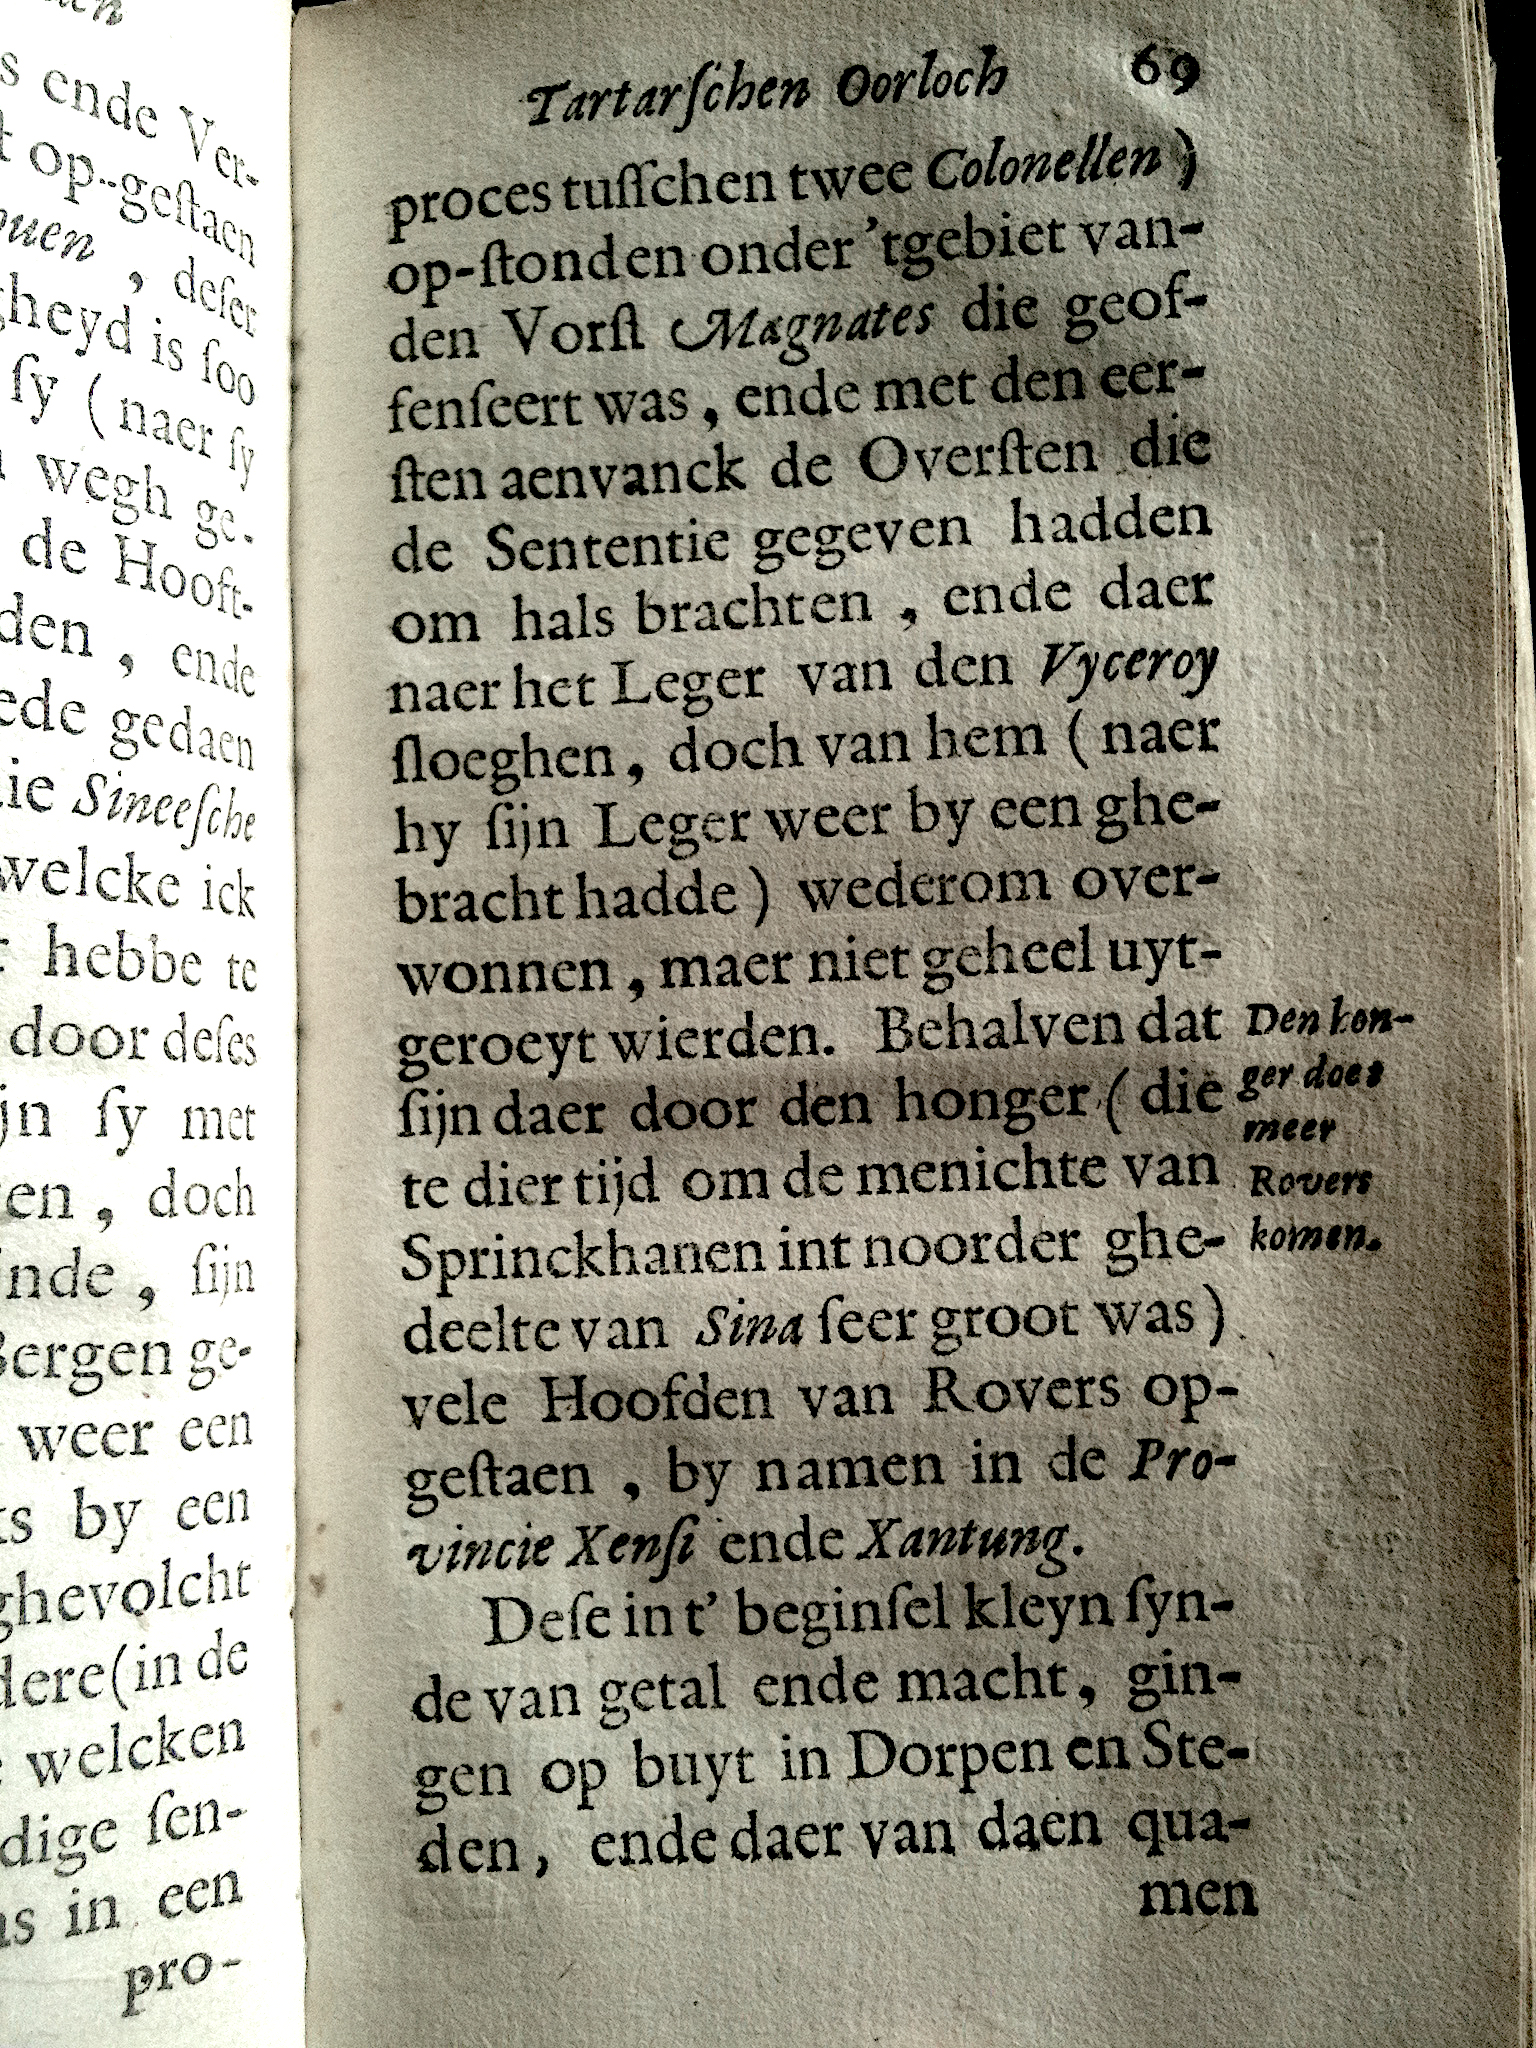 s ende Ver-
t op-geſtaen
ouen , deſer
gheyd is ſoo
ſy ( naer ſy
wegh ge-
de Hooft-
den , ende
ede gedaen
ie Sineeſche
welcke ick
hebbe te
door deſes
jn ſy met
en , doch
inde , ſijn
Bergen ge-
weer een
ts by een
ghevolcht
dere (in de
welcken
dige ſen-
as in een
pro-
Tartarſchen Oorloch 69
proces tuſſchen twee Colonellen )
op-ſtonden onder 'tgebiet van-
den Vorſt Magnates die geof-
fenſeert was , ende met den eer-
ſten aenvanck de Overſten die
de Sententie gegeven hadden
om hals brachten , ende daer
naer het Leger van den Vyceroy
ſloeghen, doch van hem ( naer
hy ſijn Leger weer by een ghe-
bracht hadde ) wederom over-
wonnen , maer niet geheel uyt-
geroeyt wierden. Behalven dat
ſijn daer door den honger ( die
te dier tijd om de menichte van
Sprinckhanen int noorder ghe-
deelte van Sina ſeer groot was )
vele Hoofden van Rovers op-
geſtaen , by namen in de Pro-
vincie Xenſi ende Xantung.
Deſe in t' beginſel kleyn ſyn-
de van getal ende macht, gin-
gen op buyt in Dorpen en Ste-
den, ende daer van daen qua-
men
Den hon-
ger doet
meer
Rovers
komen.